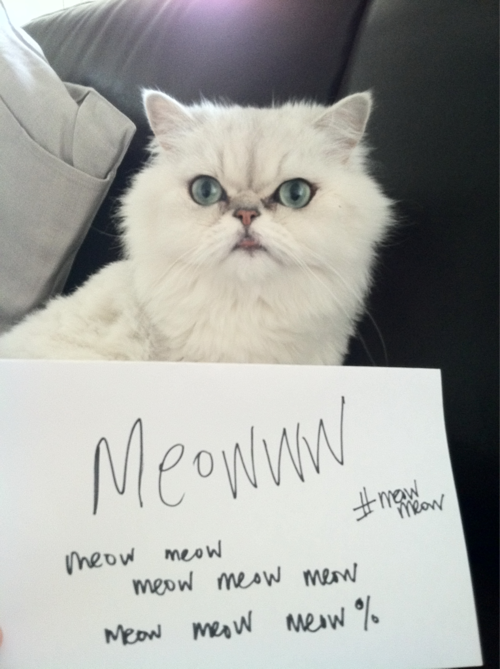 Meowww
#meow
meow
meow meow
meow meow meow
meow meow meow%